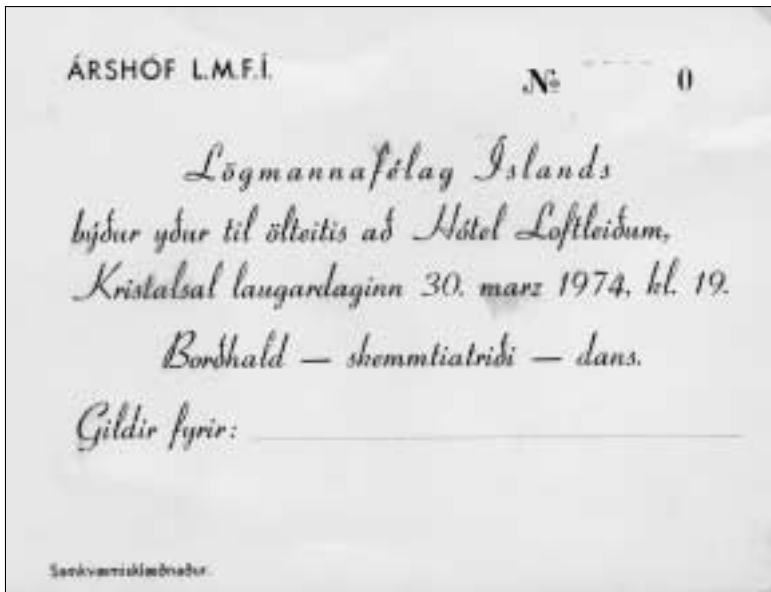 ÁRSHÓF L.M.F.Í.
№ 0
Lögmannafélag Íslands
býður yður til ölteitis að Hótel Loftleiðum,
Kristalsal laugardaginn 30. marz 1974, kl. 19.
Borðhald — skemmtiatriði — dans.
Gildir fyrir:
Samkvæmisklæðnaður.